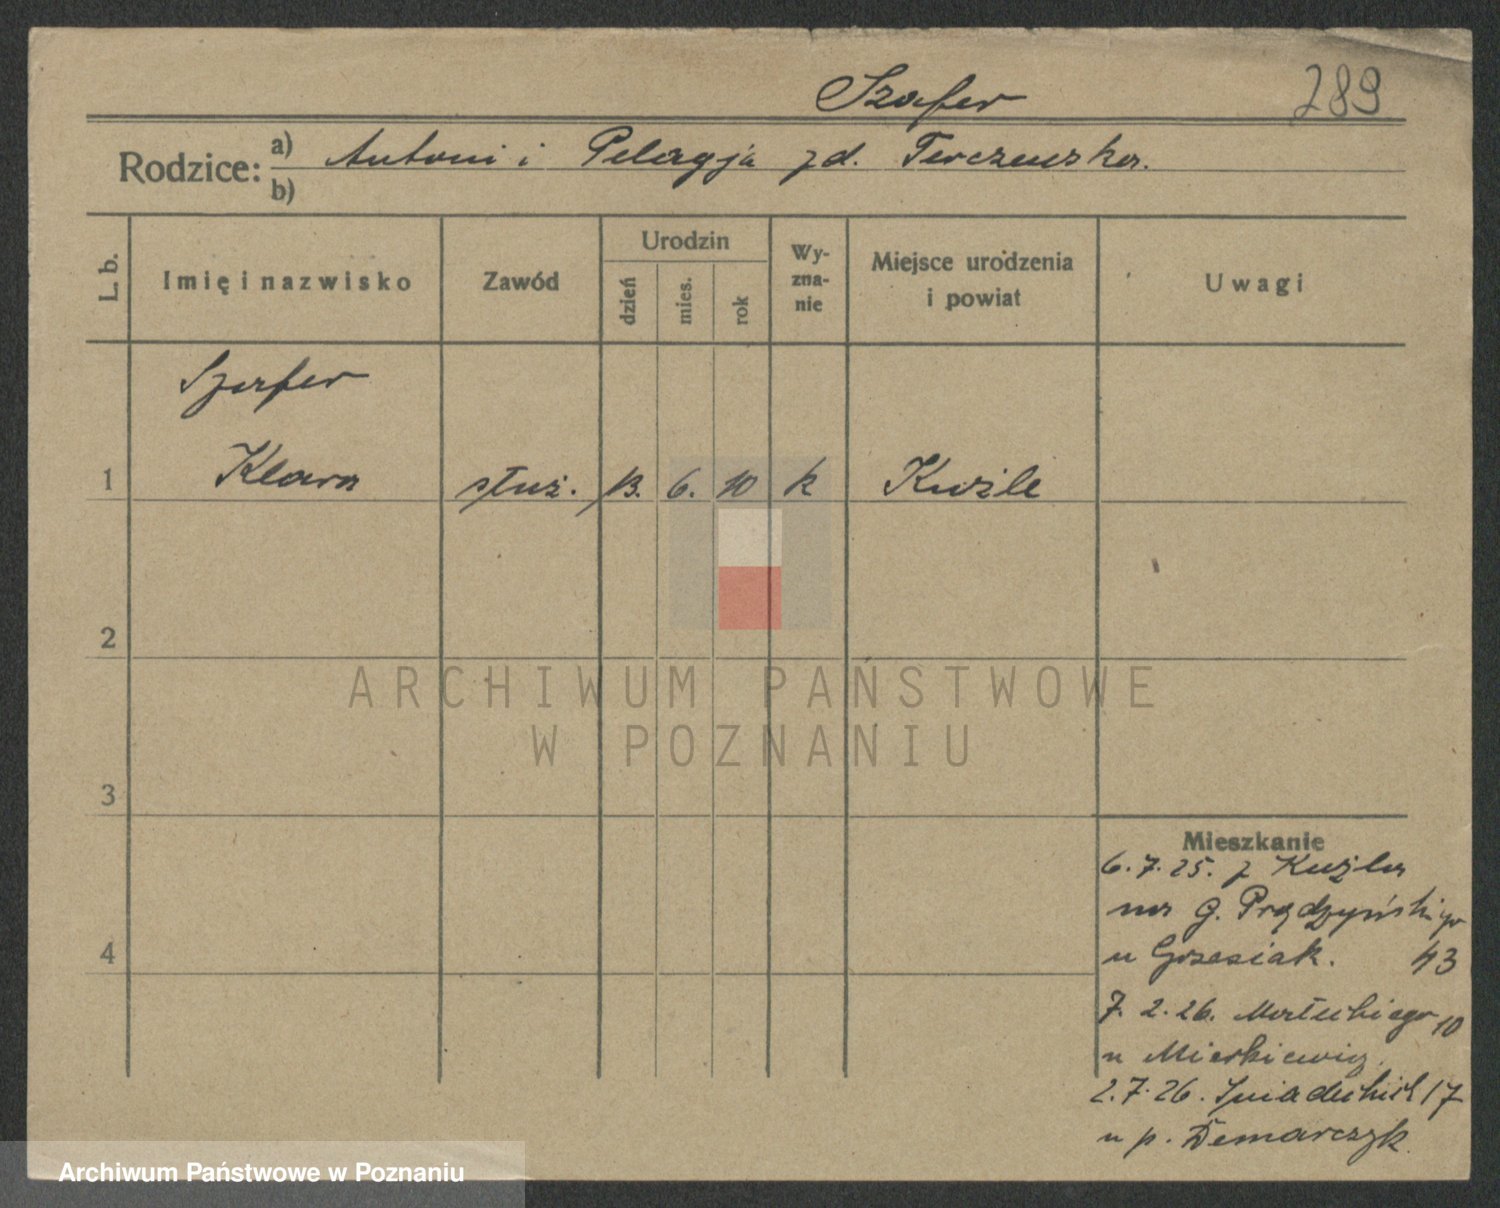 Szafer
289
Rodzice: a) Antoni i Pelagja zd. Terczewska.
b)
L. b.
Imię i nazwisko
Zawód
Urodzin
dzień
mies.
rok
Wy-
zna-
nie
Miejsce urodzenia
i powiat
Uwagi
Szafer
1 Klara służ. 13. 6. 10 k Kuźle
2
3
4
Mieszkanie
6.7.25. z Kuźla
na G. Prądzyńskiego
u Grzesiak. 43
7.2.26. Małeckiego 10
u
2.7.26. Śniadeckich 17
u p. Demarczyk.
ARCHIWUM PAŃSTWOWE
W POZNANIU
Archiwum Państwowe w Poznaniu